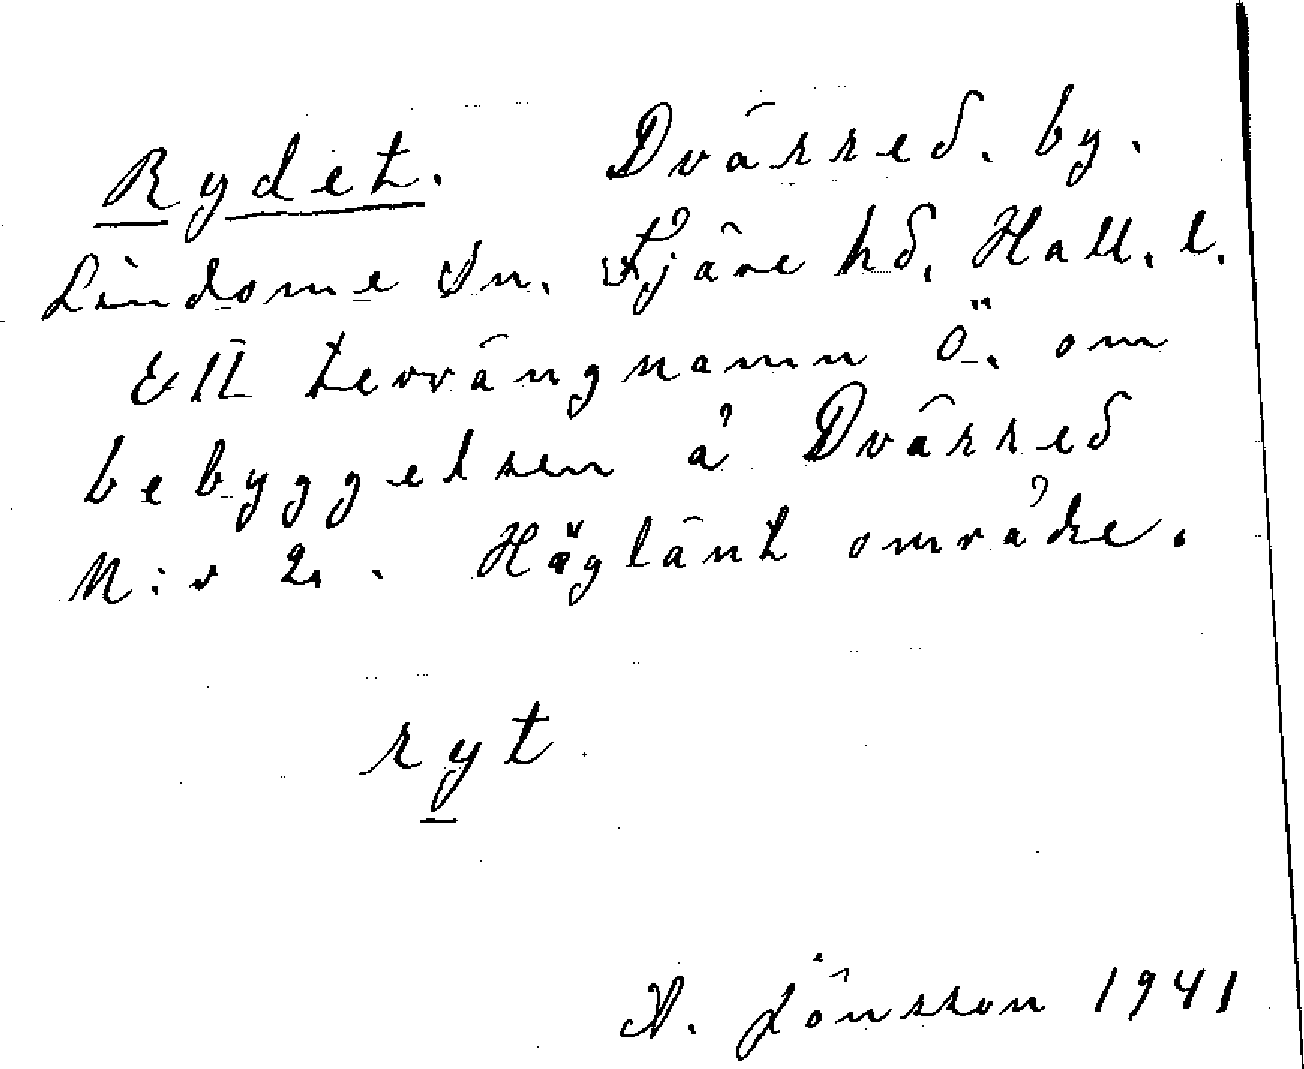 Rydet. Dvärred. by.
Lindome Sn. Fjäre hd. Hall. l.
Ett terrängnamn Ö. om
bebyggelsen å Dvärred
N:r 2. Höglänt område.
ryt
A. Jönsson 1941